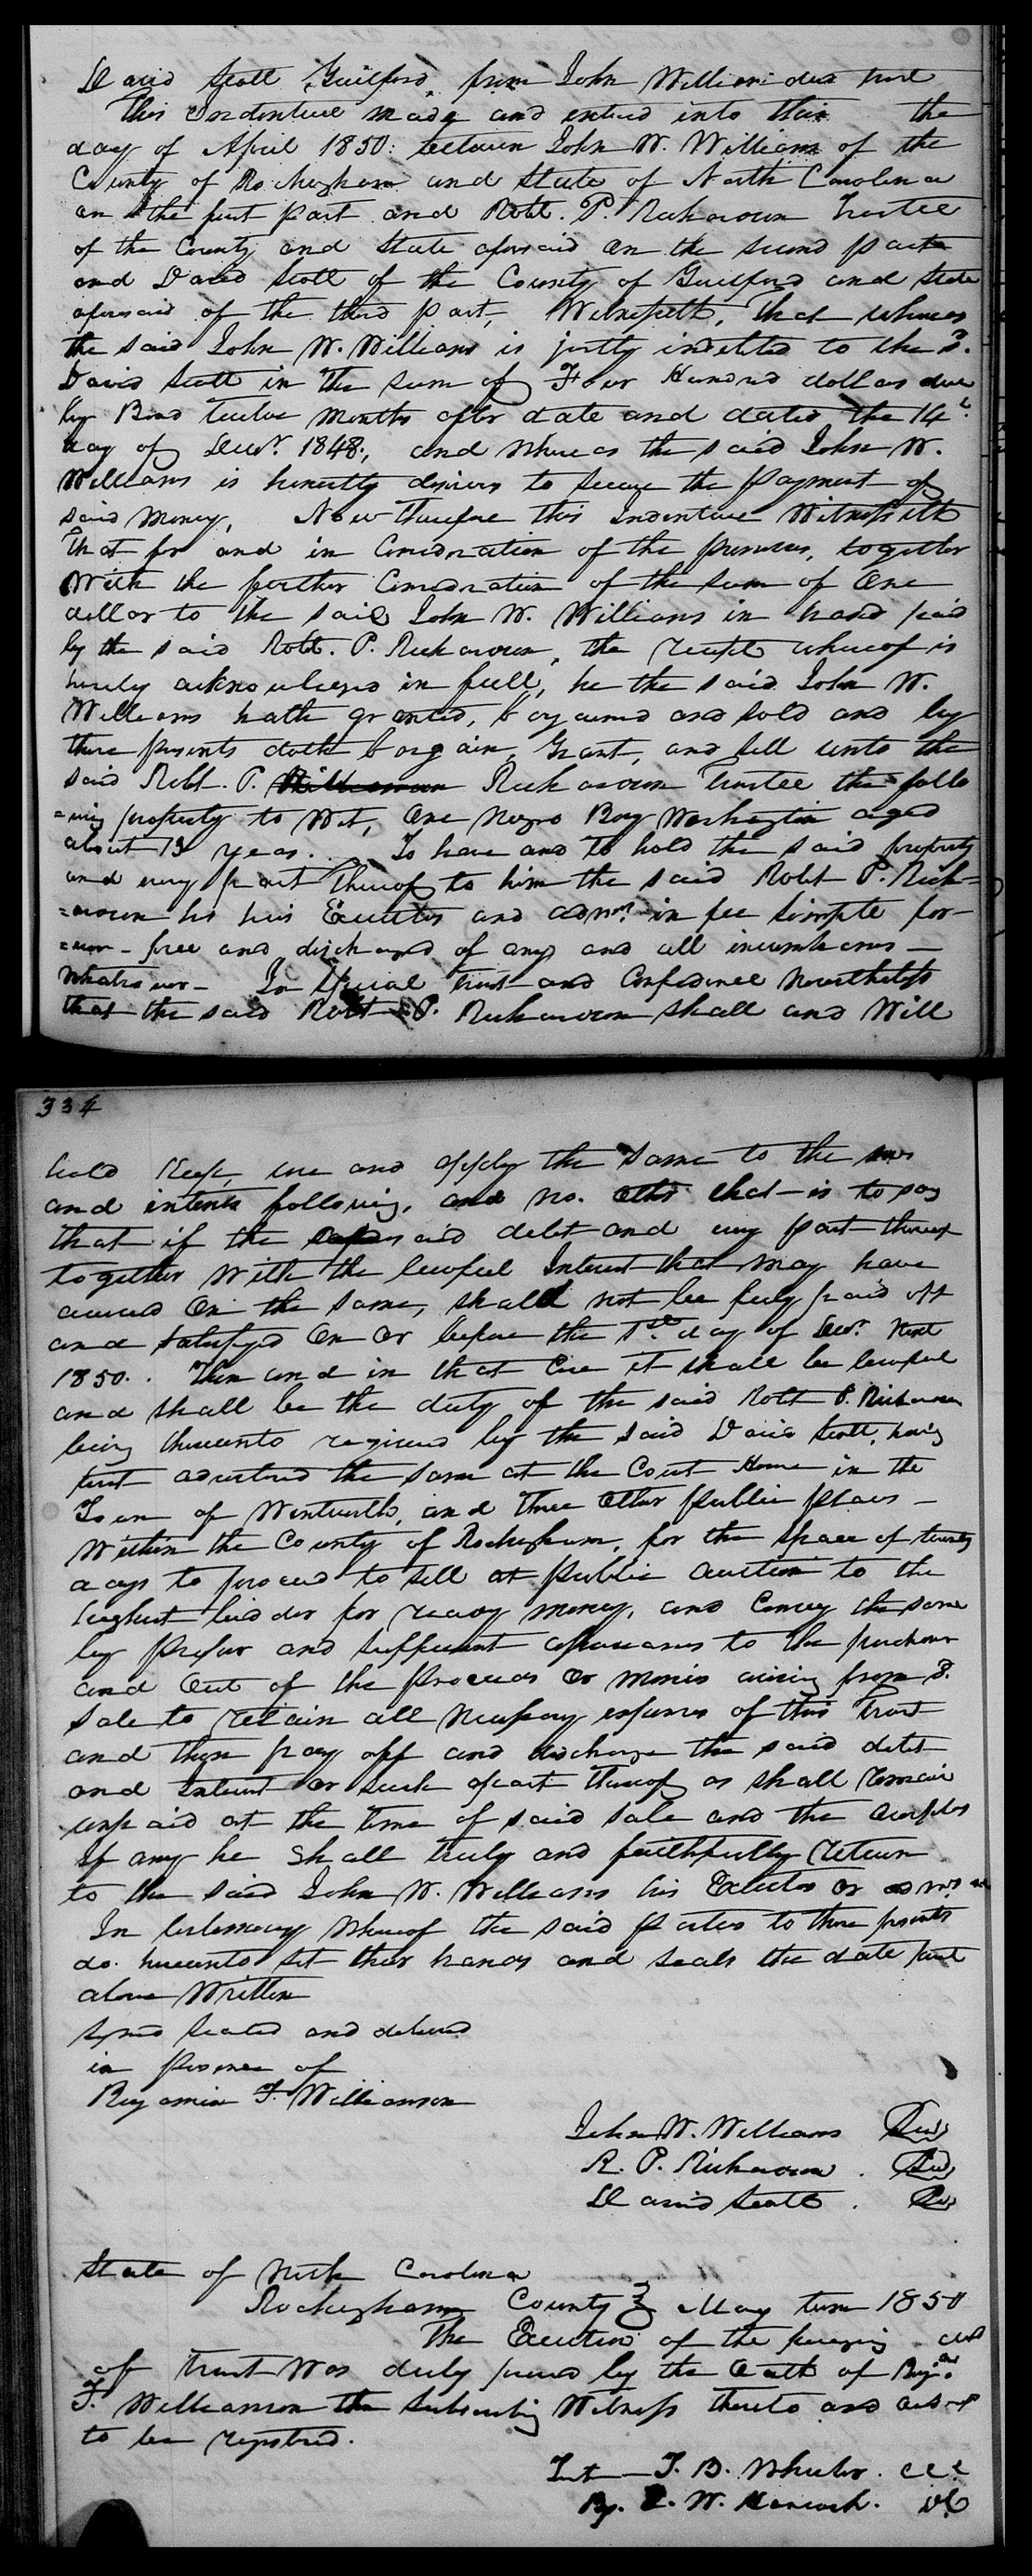 David Scott Guilford, from John Williams deed trust
This Indenture made and entered into this the
day of April 1850: between John W. Williams of the
County of Rockingham and State of North Carolina
on the first part and Robt. P. Richardson Trustee
of the County and State aforesaid on the second part
and David Scott of the County of Guilford and State
aforesaid of the third part, Witnesseth, that whereas
the said John W. Williams is justly indebted to the sd.
David Scott in the sum of Four Hundred dollars due
by Bond twelve months after date and dated the 14th
day of Decr. 1848, and whereas the said John W.
Williams is honestly desirous to secure the payment of
said money, Now Therefore this Indenture Witnesseth
that for and in Consideration of the premises, together
With the further Consideration of the sum of One
dollar to the said John W. Williams in hand paid
by the said Robt. P. Richardson, the receipt whereof is
hereby acknowledged in full, he the said John W.
Williams hath granted, bargained and sold and by
these presents doth bargain, Grant, and sell unto the
said Robt. P. Richardson Trustee the follo
=wing property to Wit, One Negro Boy Washington aged
about 13 years. To have and To hold the said property
and every part Thereof to him the said Robt P. Rich=
=ardson his heirs Executors and admrs. in fee Simple for-
=ever - free and discharged of any and all incumbrances -
whatsoever - In Special trust and Confidence Nevertheless
that the said Robt P. Richardson shall and Will
334
hold Keep, use and apply the same to the uses
and intents following, and no. other that - is to say
that if the said debt and every part thereof
together With the lawful Interest that may have
accrued On the same, shall not be fully paid off
and satisfyed On Or before the 1st day of Decr. Next
1850. Then and in that Case it shall be lawful
and shall be the duty of the said Robt P. Richardson
being thereunto required by the said David Scott, having
first advertised the same at the Court House in the
Town of Wentworth, and three other public places -
Within the County of Rockingham, for the space of twenty
days to proceed to sell at public auction to the
highest bidder for ready money, and Convey the same
by proper and sufficient assurances to the purchaser
and Out of the proceeds Or monies arising from sd.
Sale to retain all Necessary expenses of this Trust
and then pay off and discharge the said debt
and Interest Or such apart thereof as shall remain
unpaid at the time of said sale and the surplus
If any he shall truly and faithfully return
to the said John W. Williams his Executors Or admrs
In testimony Whereof the said parties to these presents
do. hereunto set their hands and seals the date first
above Written
Signed Sealed and delivered
in presence of
Benjamin F. Williamson
John W. Williams Seal
R. P. Richardson . Seal
David Scott . Seal
State of North Carolina
Rockingham County } May term 1850
The Execution of the foregoing deed
of trust Was duly proved by the Oath of Benj.
F. Williamson the subscribing Witness thereto and ordered
to be registered.
Test - T. B. Wheeler. CCC
By. W. Hancock. DC